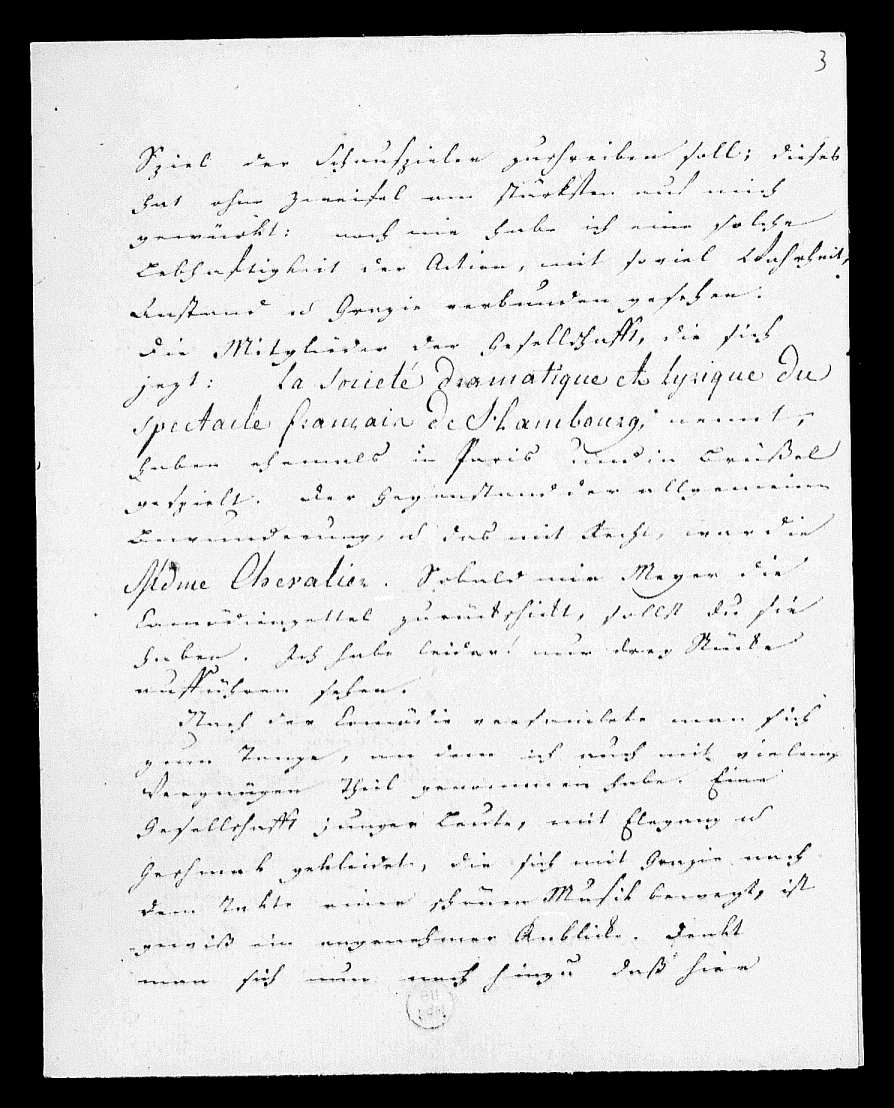 3
Spiel der Schauspieler zuschreiben soll; dieses
hat ohne Zweifel am stärksten auf mich
gewürkt: noch nie habe ich eine solche
Lebhaftigkeit der Action, mit soviel Wahrheit,
Anstand u Grazie verbunden gesehen.
Die Mitglieder der Gesellschafft, die sich
jezt: La Societé dramatique et lyrique du
spectacle français de Hambourg, nennt,
haben ehemals in Paris und in Brüßel
gespielt. Der Gegenstand der allgemeinen
Bewunderung, u das mit Recht, war die
Mdme Chevalier. Sobald mir Meyer die
Comödienzettel zurückschickt, sollst Du sie
haben. Ich habe leider! nur drey Stücke
aufführen sehen.
Nach der Comödie versamlete man sich
zum Tanze, an dem ich auch mit vielem
Vergnügen Theil genommen habe. Eine
Gesellschafft junger Leute, mit Eleganz u
Geschmak gekleidet, die sich mit Grazie nach
dem Takte einer schönen Musik bewegt, ist
gewiß ein angenehmer Anblick. Denkt
man sich nun noch hinzu daß hier